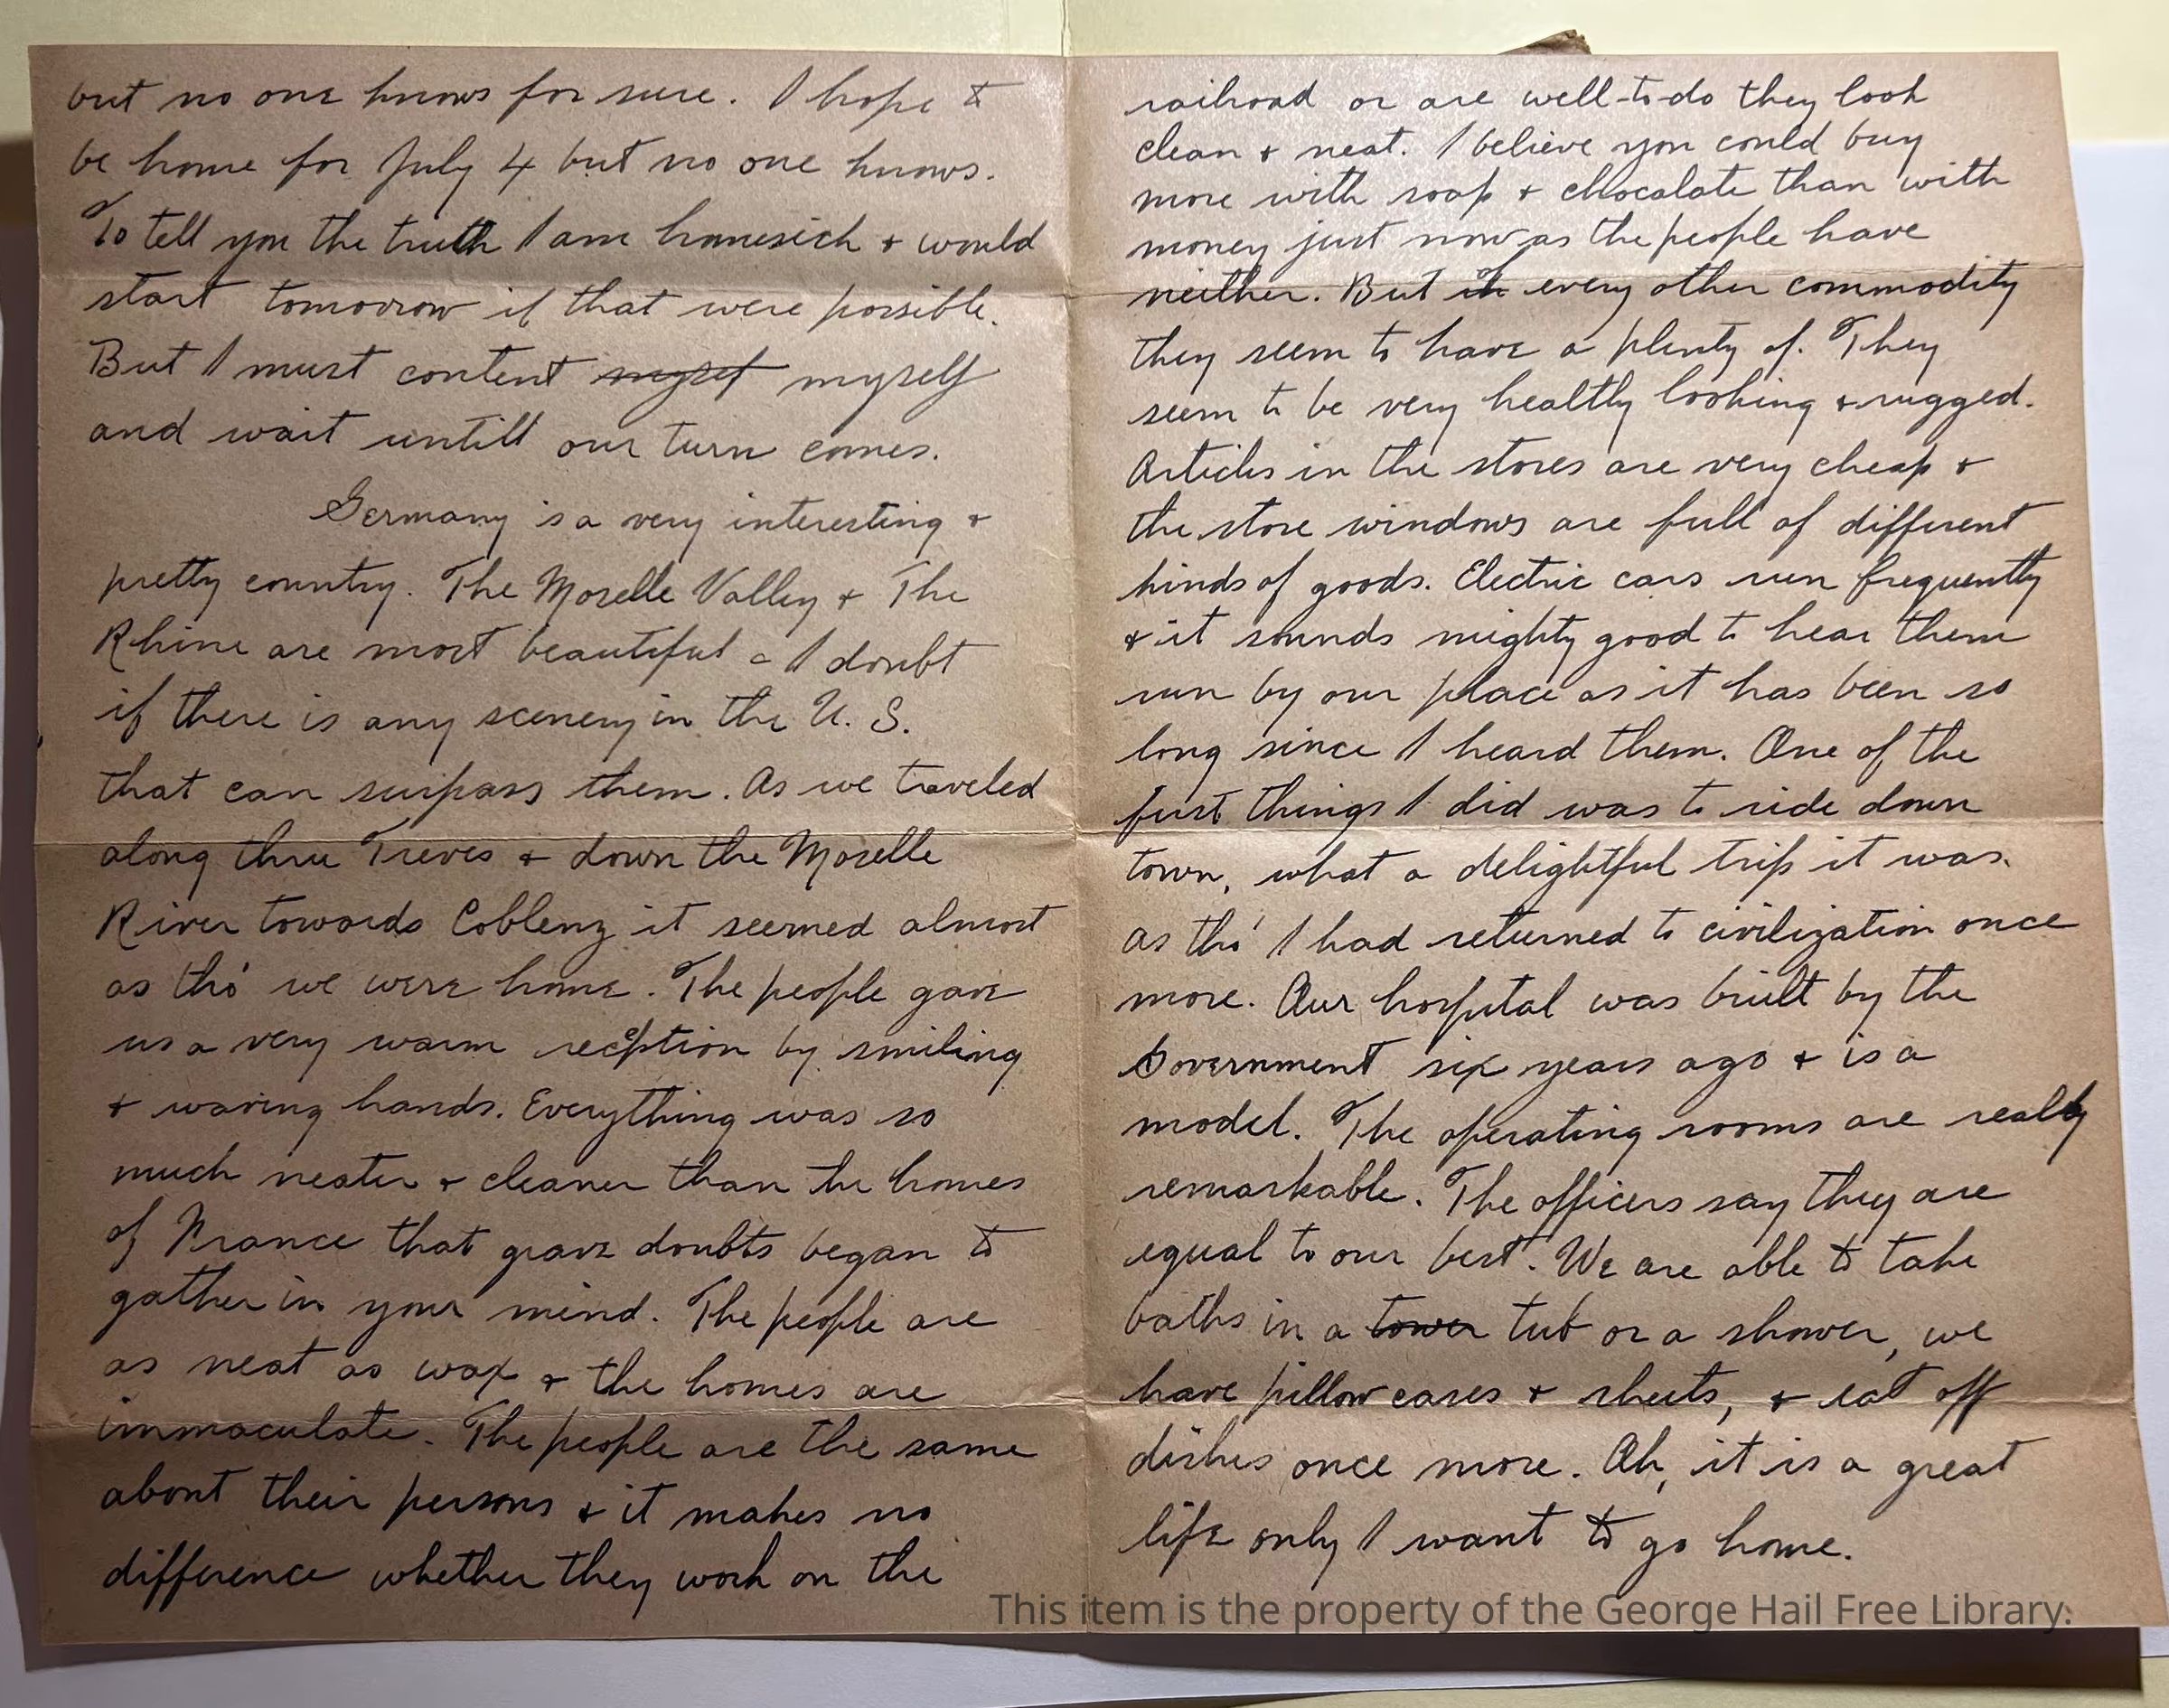 but no one knows for sure. I hope to
be home for July 4 but no one knows.
To tell you the truth I am homesick + would
start tomorrow if that were possible.
But I must content mysef myself
and wait untill our turn comes.
Germany is a very interesting +
pretty country. The Moselle Valley + The
Rhine are most beautiful - I doubt
if there is any scenery in the U. S.
that can surpass them. As we traveled
along thru Treves + down the Moselle
River towards Coblenz it seemed almost
as tho' we were home. The people gave
us a very warm reception by smiling
+ waving hands. Everything was so
much neater + cleaner than the homes
of France that grave doubts began to
gather in your mind. The people are
as neat as wax + the homes are
immaculate. The people are the same
about their persons + it makes no
difference whether they work on the
railroad or are well-to-do they look
clean + neat. I believe you could buy
more with soap + chocolate than with
money just now as the people have
neither. But every other commodity
they seem to have a plenty of. They
seem to be very healthy looking + rugged.
Articles in the stores are very cheap +
the store windows are full of different
kinds of goods. Electric cars run frequently
+ it sounds mighty good to hear them
run by our place as it has been so
long since I heard them. One of the
first things I did was to ride down
town, what a delightful trip it was.
as tho' I had returned to civilization once
more. Our hospital was built by the
Government six years ago + is a
model. The operating rooms are really
remarkable. The officers say they are
equal to our best. We are able to take
baths in a tower tub or a shower, we
have pillow cases + sheets, + eat off
dishes once more. Oh, it is a great
life only I want to go home.
This item is the property of the George Hail Free Library.